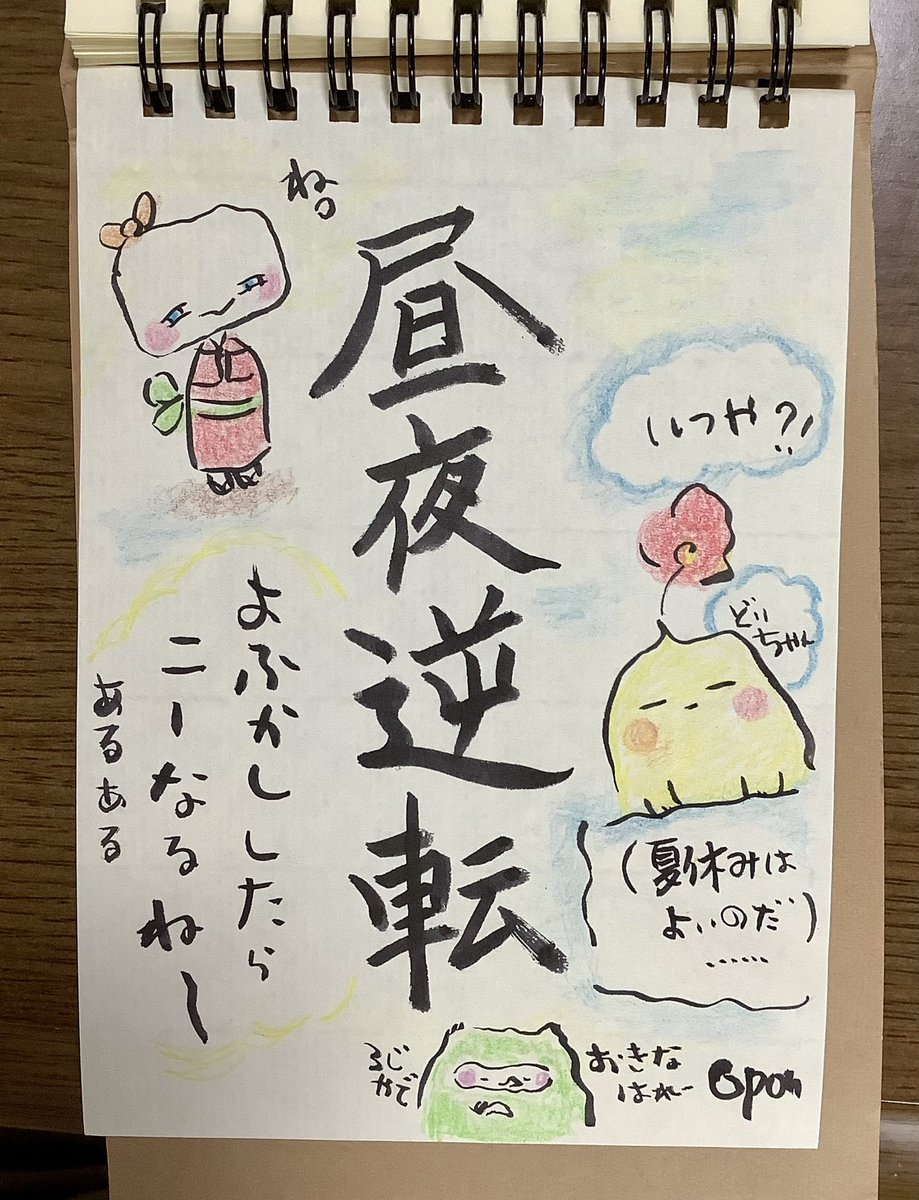 昼夜逆転
ねっ
いつや?!
どぃ
ちゃん
(夏休みは
よいのだ)
……
よふかししたら
ニーなるねー
あるある
おきな
はれー
るじ
やで
Opom